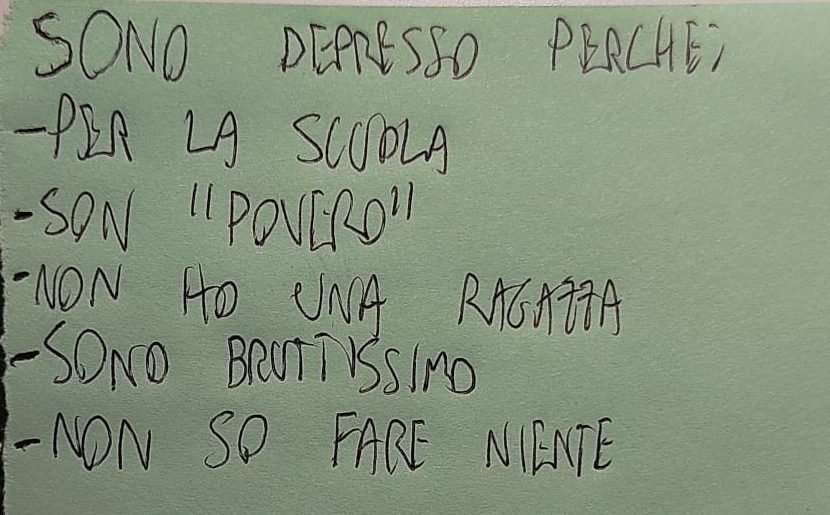 SONO DEPRESSO PERCHE;
-PER LA SCUOLA
-SON "POVERO"
-NON HO UNA RAGAZZA
-SONO BRUTTISSIMO
-NON SO FARE NIENTE